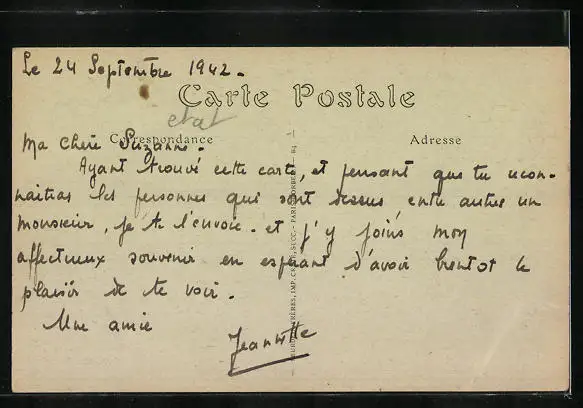 Le 24 Septembre 1942.
Carte Postale
etat
Correspondance
Adresse
Ma Chère Suzanne.
Ayant trouvé cette carte, et pensant que tu recon-
naitras les personnes qui sont dessus entre autre un
monsieur, je te l'envoie. et j'y joins mon
affectueux souvenir en espérant d'avoir bientot le
plaisir de te voir.
Une amie
Jeannette